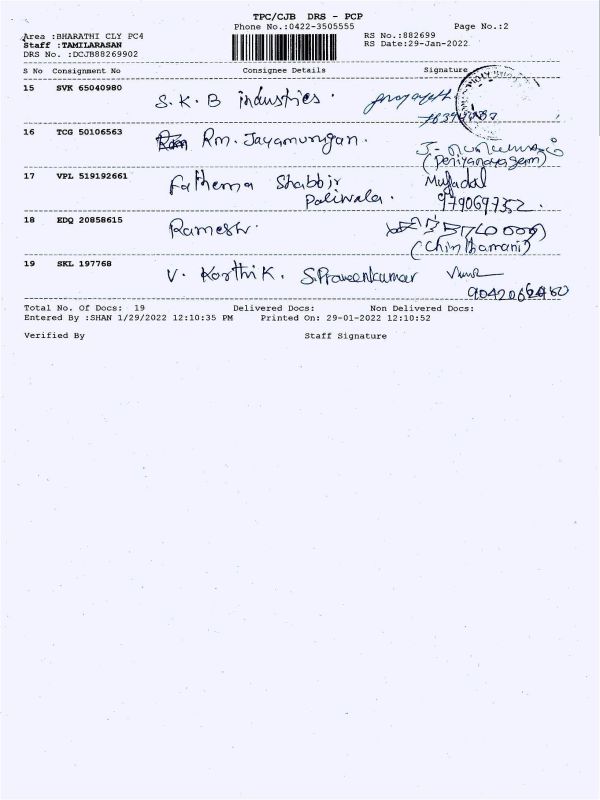 TPC/CJB DRS - PCP
Phone No.:0422-3505555
Page No.:2
Area :BHARATHI CLY PC4
RS No.:882699
Staff :TAMILARASAN
RS Date:29-Jan-2022
DRS No. :DCJB88269902
S No Consignment No Consignee Details Signature
15 SVK 65040980 S.K.B industries.
16 TCG 50106563 Rm. Jayamurugan.
(Periyanayagam)
17 VPL 519192661 Fathema Shabbir
Paliwala.
9790697352.
18 EDQ 20858615 Ramesh.
(Chinthamani)
19 SKL 197768 V. Karthik. S.Praveenkumar
Total No. Of Docs: 19 Delivered Docs: Non Delivered Docs:
Entered By :SHAN 1/29/2022 12:10:35 PM Printed On: 29-01-2022 12:10:52
Verified By Staff Signature